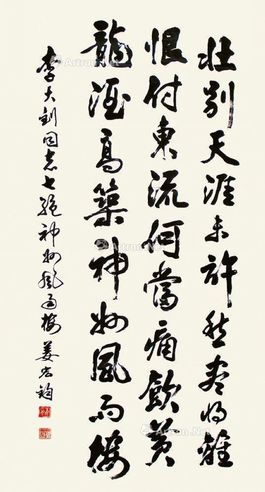 壯别天涯未許愁盡將離
恨付東流何當痛飲黄
龍酒高築神州風雨樓
李大釗同志七絕神州風雨樓 姜